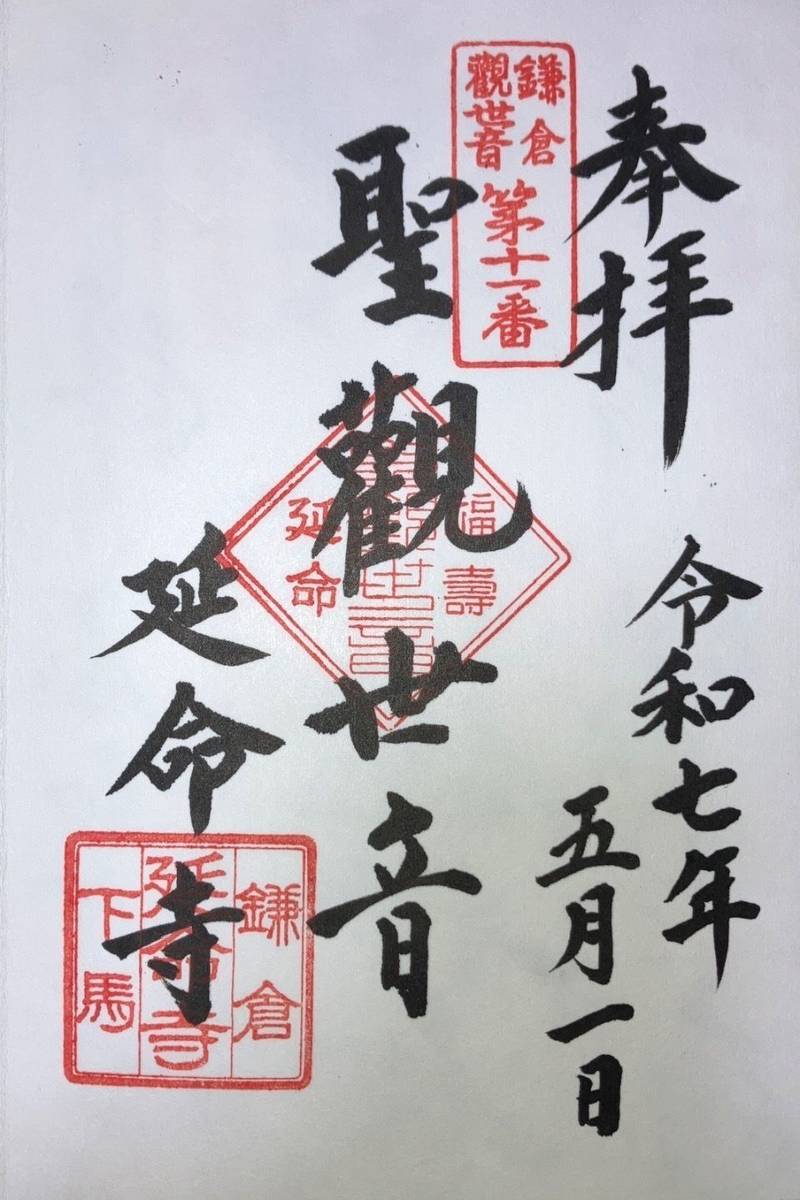 奉拝
令和七年
五月一日
鎌倉
觀世音
第十一番
聖觀世音
福壽
延命
延命寺
鎌倉
延命寺
下馬